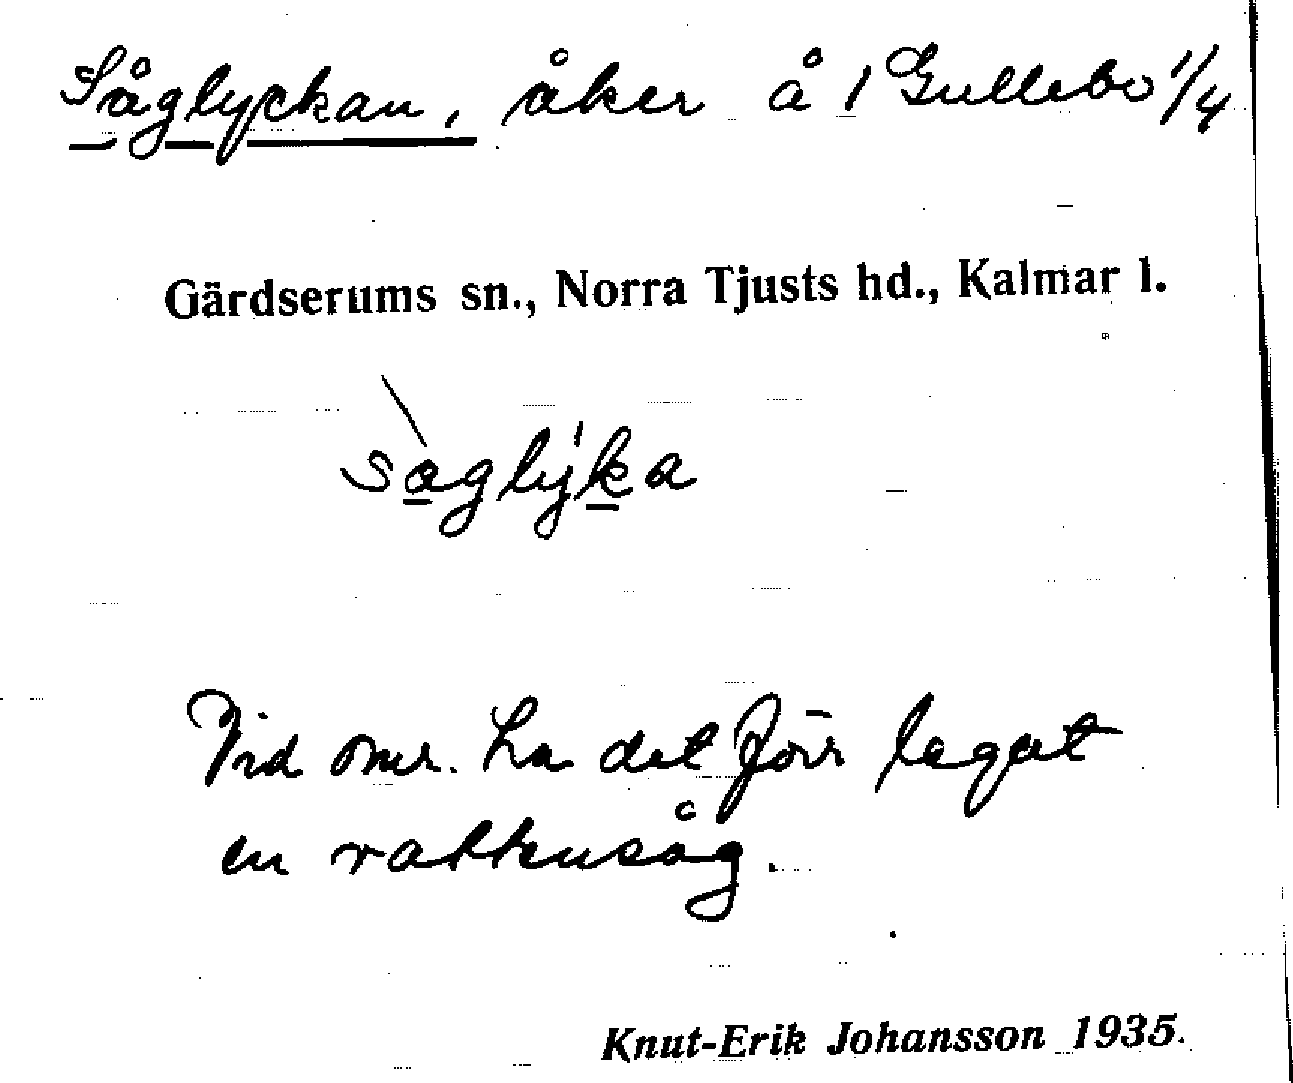 Såglyckan, åker å 1 Gullebo 1/4
Gärdserums sn., Norra Tjusts hd., Kalmar l.
saglyka
Vid omr. ha det förr legat
en vattensåg.
Knut-Erik Johansson 1935.